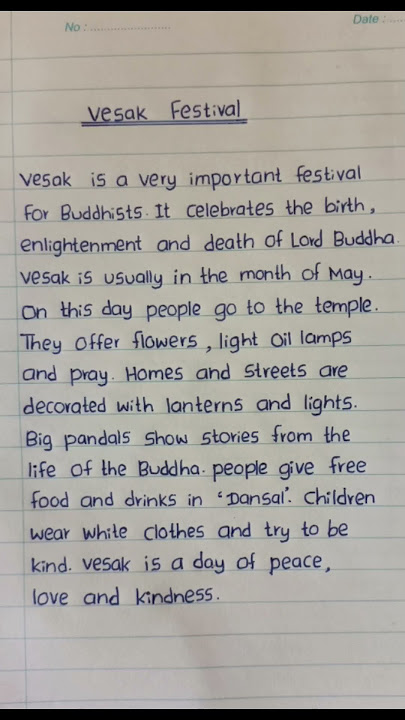 No : ........................
Date : .....
Vesak Festival
Vesak is a very important festival
for Buddhists. It celebrates the birth,
enlightenment and death of Lord Buddha.
Vesak is usually in the month of May.
On this day people go to the temple.
They offer flowers, light oil lamps
and pray. Homes and streets are
decorated with lanterns and lights.
Big pandals show stories from the
life of the Buddha. people give free
food and drinks in ‘Dansal’. Children
wear white clothes and try to be
kind. Vesak is a day of peace,
love and kindness.